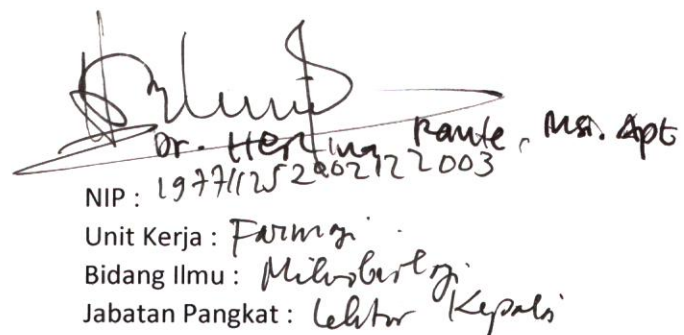 Dr. Herlina Rante, Msi. Apt
NIP : 197711252002122003
Unit Kerja : Farmasi
Bidang Ilmu : Mikrobiologi
Jabatan Pangkat : Lektor Kepala